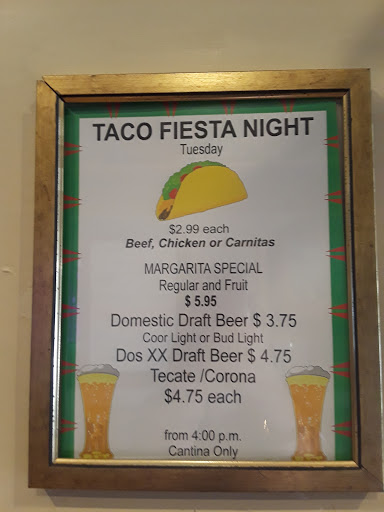 TACO FIESTA NIGHT
Tuesday
$2.99 each
Beef, Chicken or Carnitas
MARGARITA SPECIAL
Regular and Fruit
$ 5.95
Domestic Draft Beer $ 3.75
Coor Light or Bud Light
Dos XX Draft Beer $ 4.75
Tecate /Corona
$4.75 each
from 4:00 p.m.
Cantina Only